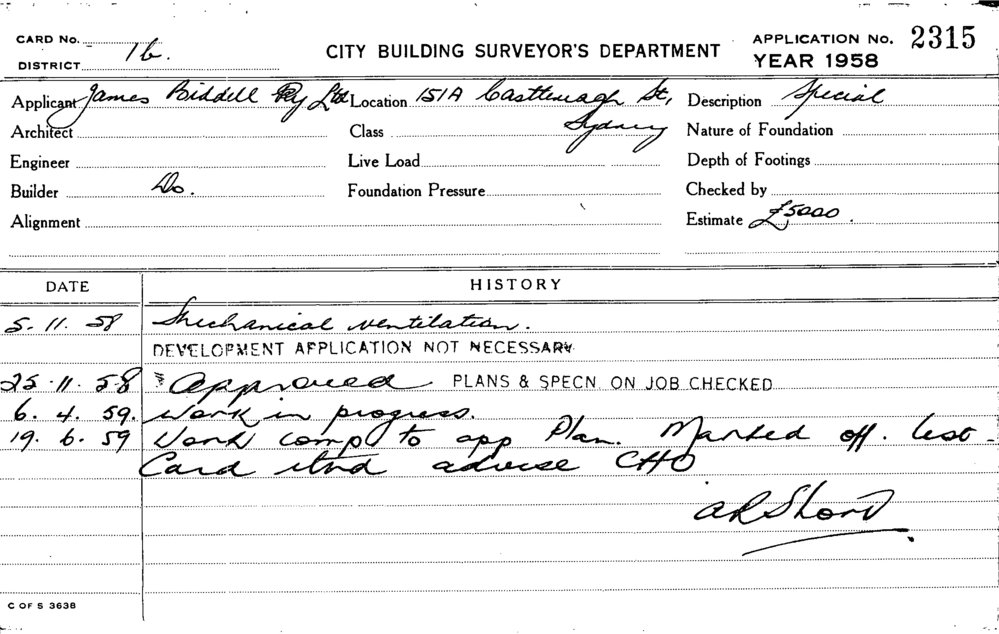 CARD No. 16. CITY BUILDING SURVEYOR'S DEPARTMENT APPLICATION No. 2315
DISTRICT YEAR 1958
Applicant James Biddell Pty Ltd Location 151A Castlereagh St, Sydney Description Special
Architect Class Nature of Foundation
Engineer Live Load Depth of Footings
Builder Do. Foundation Pressure Checked by
Alignment Estimate £5000.
DATE HISTORY
5. 11. 58 Mechanical ventilation.
DEVELOPMENT APPLICATION NOT NECESSARY
25. 11. 58 Approved PLANS & SPECN ON JOB CHECKED
6. 4. 59. Work in progress.
19. 6. 59 Work comp to app Plan. Marked off.
Card advise CHO
ARShort
C OF S 3638